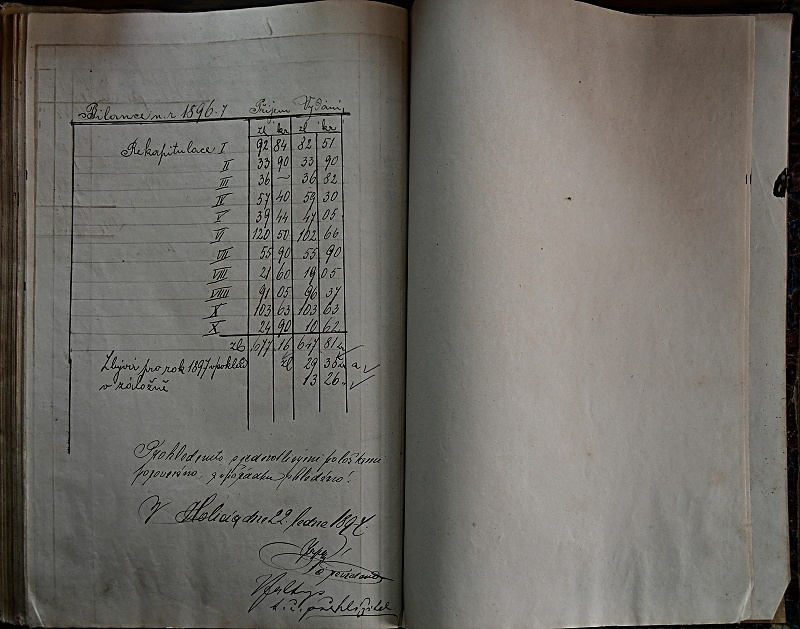 Bilance n. r 1896. Příjem Vydání
zl kr zl kr
Rekapitulace I 92 84 82 51
II 33 90 33 90
III 36 ~ 36 82
IV 57 40 59 30
V 39 44 47 05
VI 120 50 102 66
VII 55 90 55 90
VIII 21 60 19 05
VIIII 91 05 96 37
X 103 63 103 63
X 24 90 10 62
zl. 677 16 647 81
Zbývá pro rok 1897 v pokl zl 29 35
v záložně 13 26
Prohlednuto s jednotlivými položkami
porovnáno
V dne 22. ledna 1897.